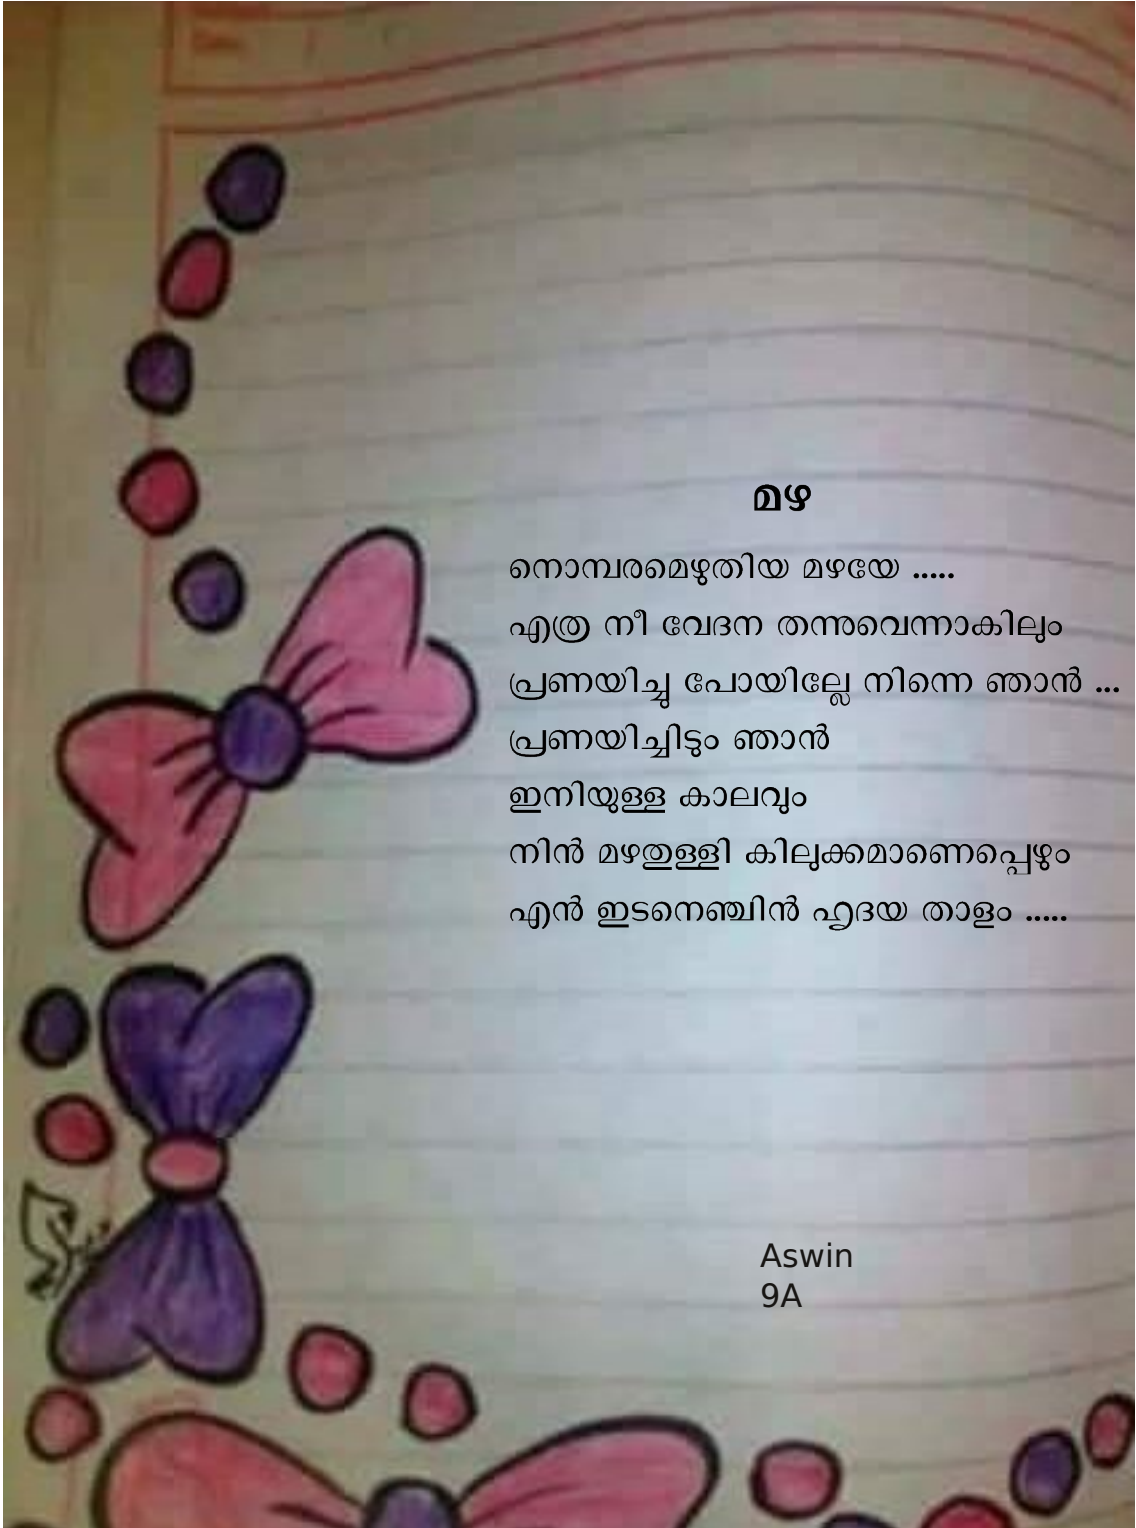 മഴ
നൊമ്പരമെഴുതിയ മഴയേ .....
എത്ര നീ വേദന തന്നുവെന്നാകിലും
പ്രണയിച്ചു പോയില്ലേ നിന്നെ ഞാൻ ...
പ്രണയിച്ചിടും ഞാൻ
ഇനിയുള്ള കാലവും
നിൻ മഴതുള്ളി കിലുക്കമാണെപ്പെഴും
എൻ ഇടനെഞ്ചിൻ ഹൃദയ താളം .....
Aswin
9A